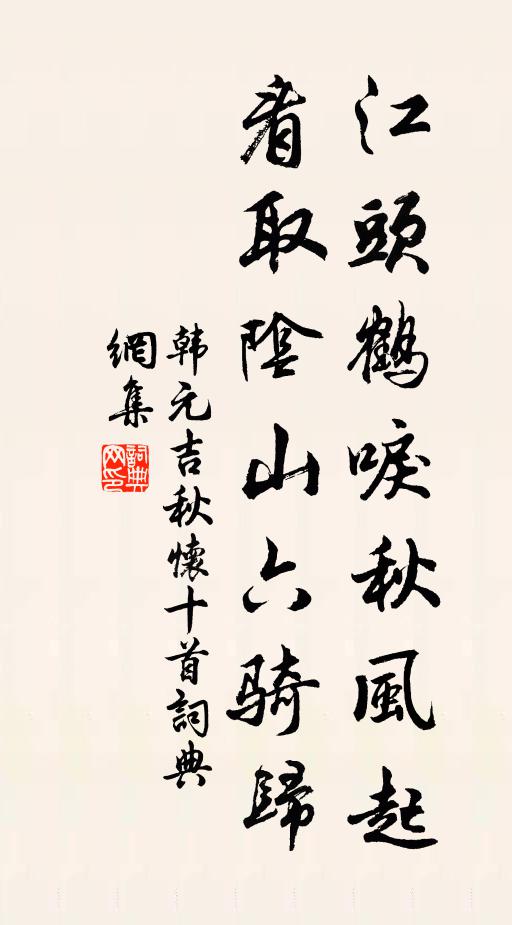 江頭鶴唳秋風起
看取陰山六騎歸
韩元吉秋懷十首詞典
網集
詞典
网印